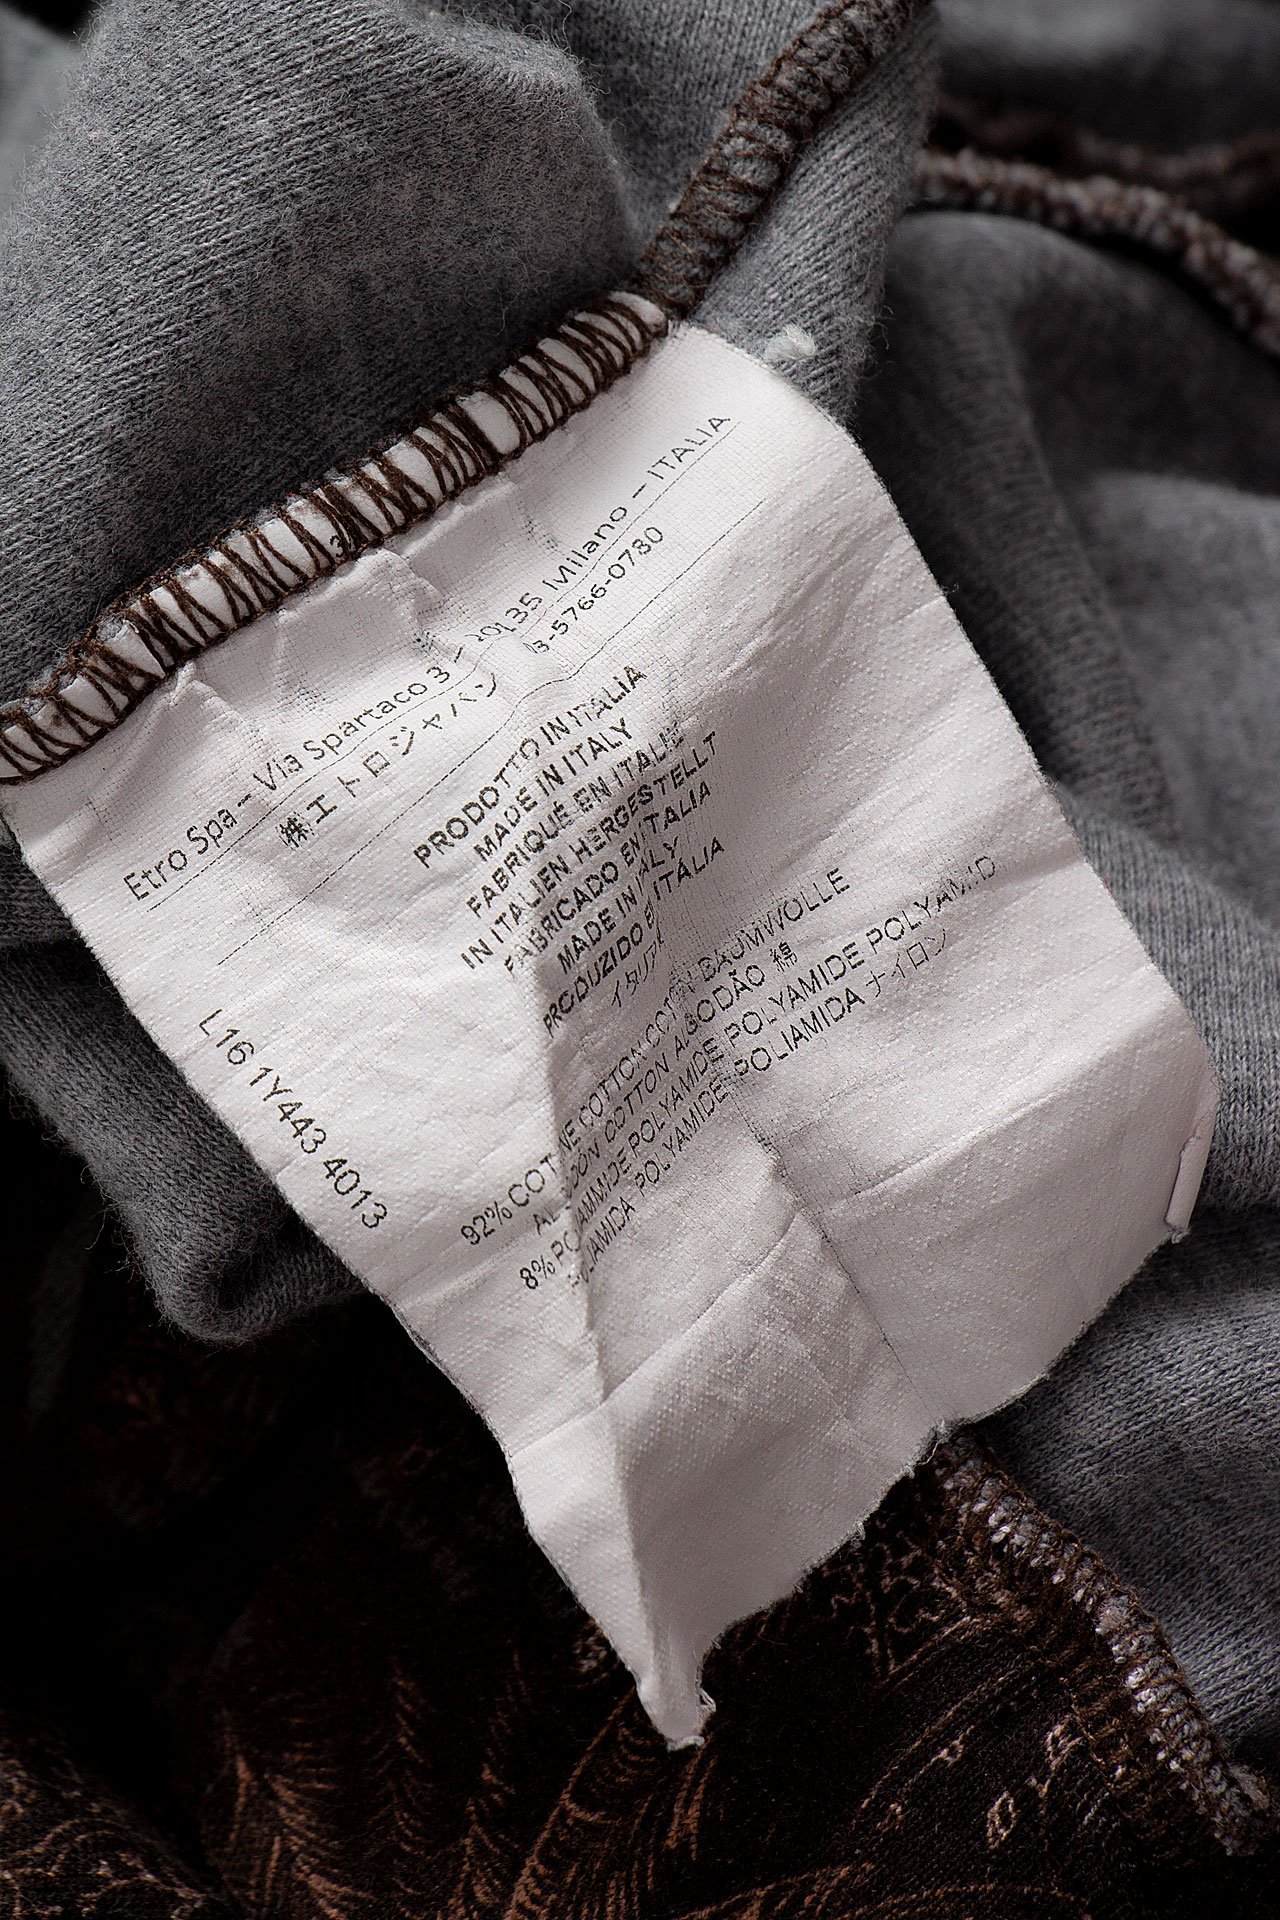 Etro Spa – Via Spartaco 3 – 20135 Milano – ITALIA
㈱エトロジャパン 03-5766-0780
PRODOTTO IN ITALIA
MADE IN ITALY
FABRIQUÉ EN ITALIE
IN ITALIEN HERGESTELLT
FABRICADO EN ITALIA
MADE IN ITALY
PRODUZIDO EM ITÁLIA
イタリア
L16 1Y443 4013
92% COTONE COTTON COTON BAUMWOLLE
ALGODÓN COTTON ALGODÃO 綿
8% POLIAMMIDE POLYAMIDE POLYAMIDE POLYAMID
POLIAMIDA POLYAMIDE POLIAMIDA ナイロン